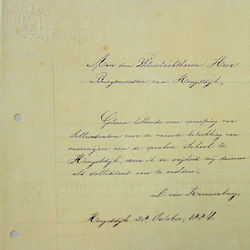 Aan den Weledelachtbaren Heer
Burgemeester van Hengstdijk.
Gelezen hebbende eene oproeping van
Sollicitanten voor de vacante betrekking van
onderwijzer aan de openbare School te
Hengstdijk, neem ik de vrijheid mij daarvoor
als sollicitant aan te melden.
Hengstdijk, 20 October, 1904.